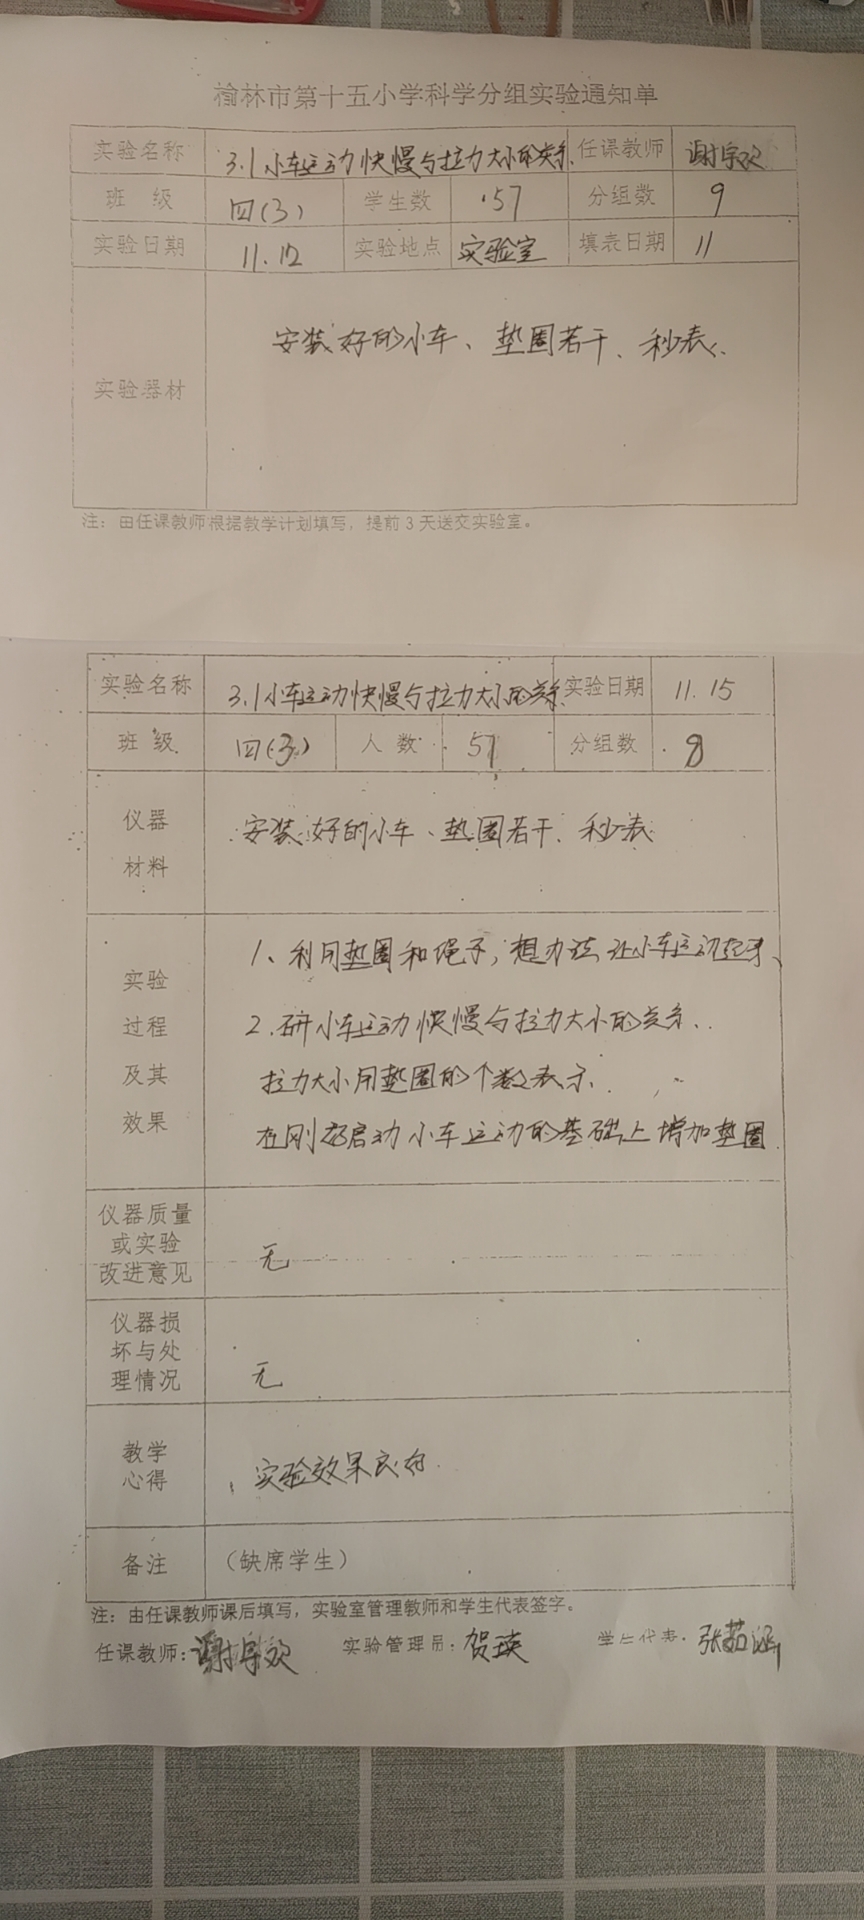 榆林市第十五小学科学分组实验通知单
实验名称 3.1小车运动快慢与拉力大小的关系. 任课教师 谢宇欢
班 级 四(3) 学生数 57 分组数 9
实验日期 11.12 实验地点 实验室 填表日期 11
实验器材 安装好的小车、垫圈若干、秒表.
注：由任课教师根据教学计划填写，提前3天送交实验室。
实验名称 3.1小车运动快慢与拉力大小的关系 实验日期 11.15
班 级 四(3) 人 数 57 分组数 8
仪器
材料
安装好的小车、垫圈若干、秒表
实验
过程
及其
效果
1、利用垫圈和绳子,想办法让小车运动起来、
2.研小车运动快慢与拉力大小的关系.
拉力大小用垫圈的个数表示.
在刚好启动小车运动的基础上增加垫圈
仪器质量
或实验
改进意见
无
仪器损
坏与处
理情况
无
教学
心得
实验效果良好.
备注 （缺席学生）
注：由任课教师课后填写，实验室管理教师和学生代表签字。
任课教师：谢宇欢 实验管理员：贺瑛 学生代表：张茹涵